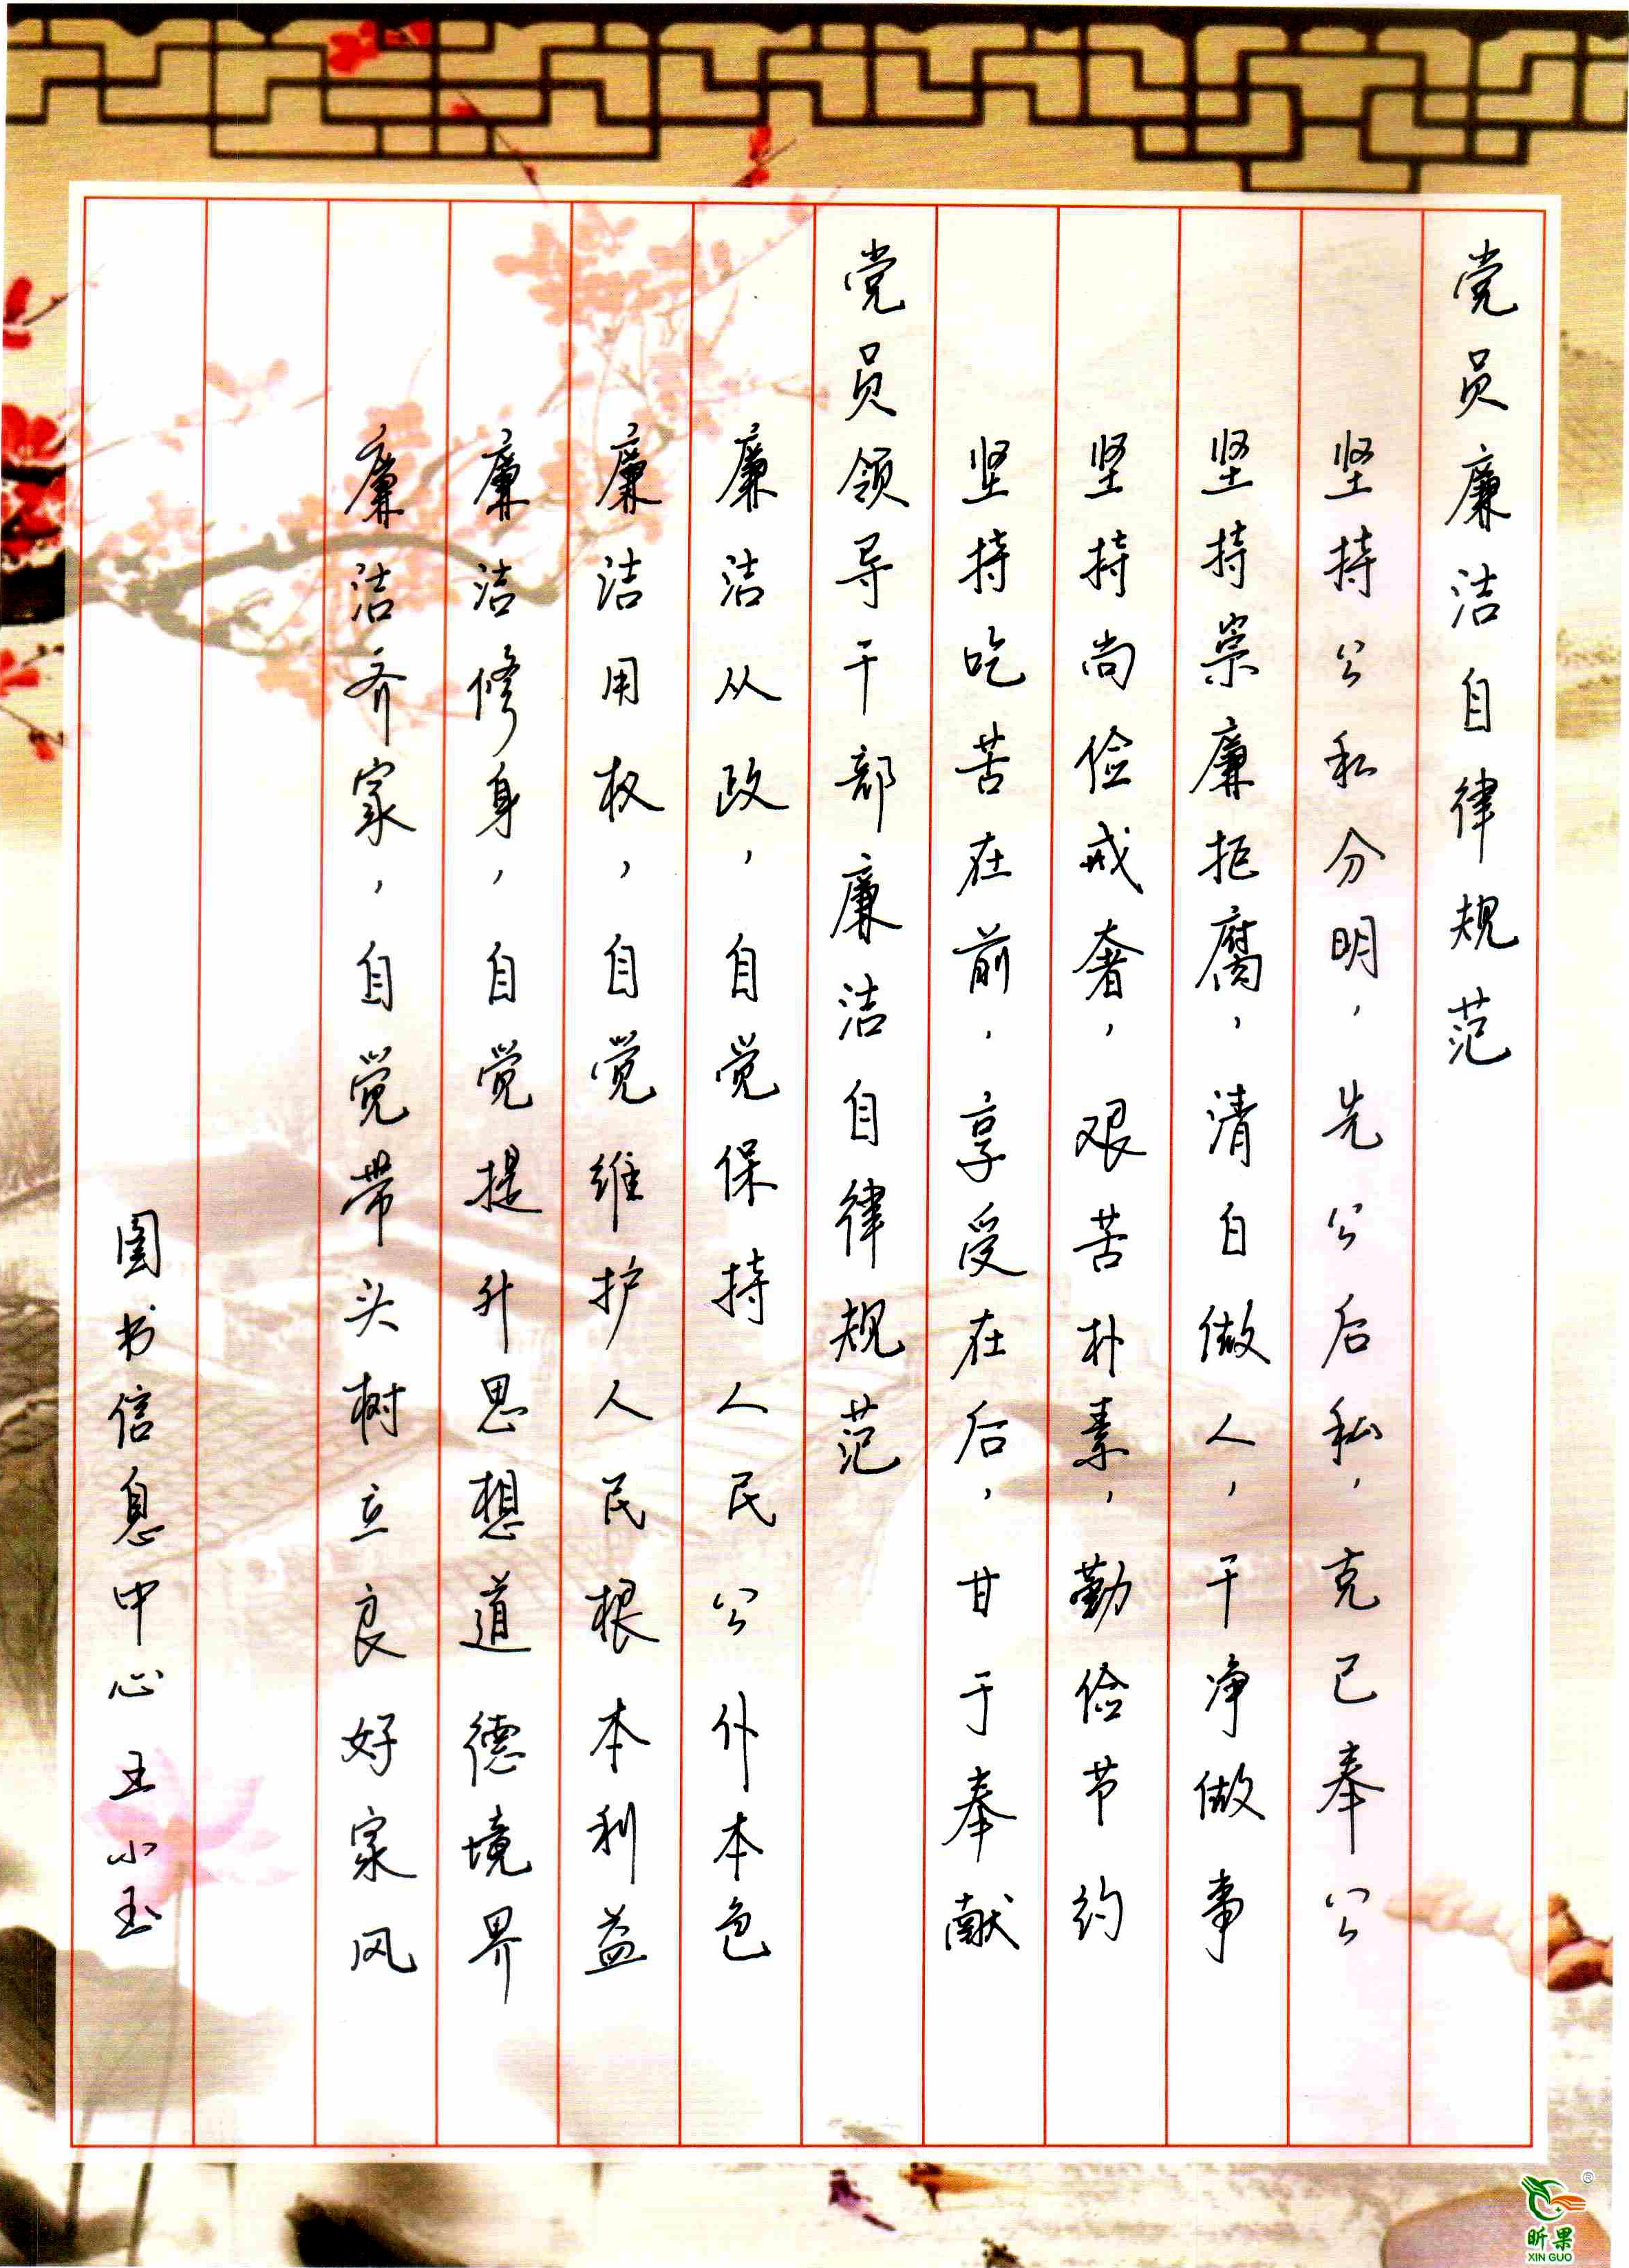 党员廉洁自律规范
坚持公私分明，先公后私，克己奉公
坚持崇廉拒腐，清白做人，干净做事
坚持尚俭戒奢，艰苦朴素，勤俭节约
坚持吃苦在前，享受在后，甘于奉献
党员领导干部廉洁自律规范
廉洁从政，自觉保持人民公仆本色
廉洁用权，自觉维护人民根本利益
廉洁修身，自觉提升思想道德境界
廉洁齐家，自觉带头树立良好家风
图书信息中心王小玉
昕果
XIN GUO
®